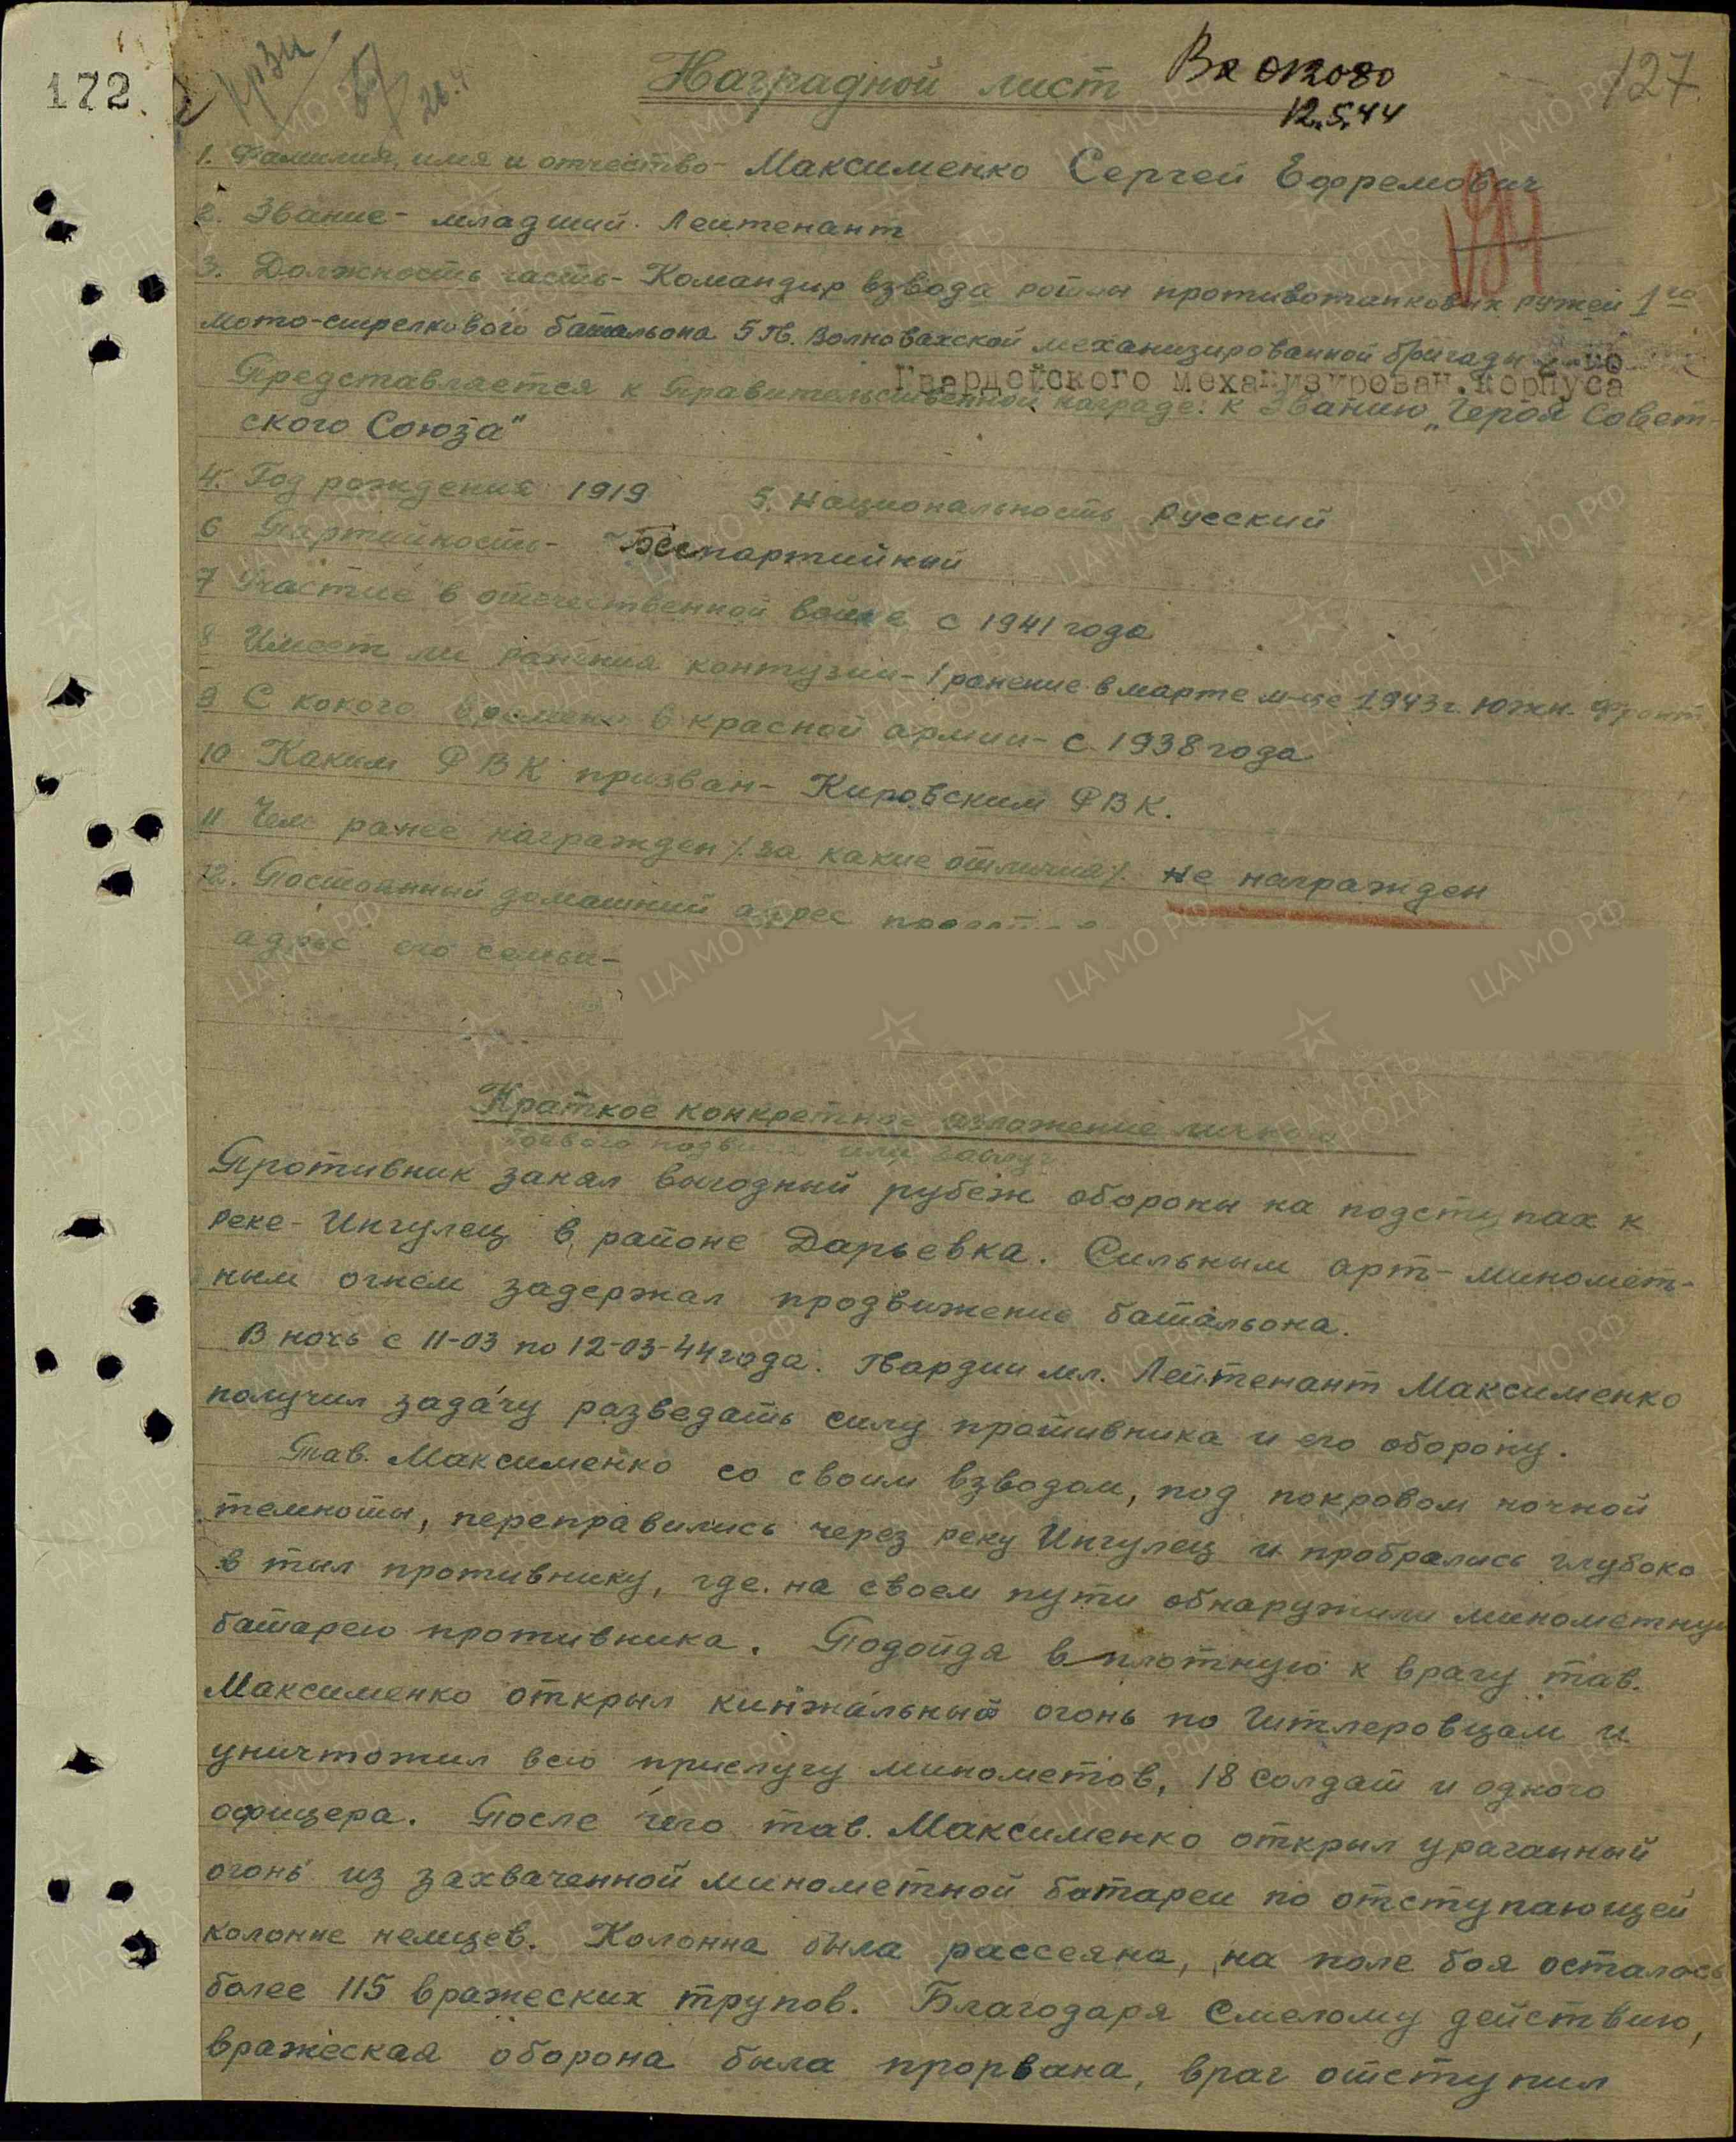 172
26.4
Наградной лист
Вх 012080
12.5.44
127
1. Фамилия, имя и отчество - Максименко Сергей Ефремович
2. Звание - младший Лейтенант
3. Должность часть - Командир взвода роты противотанковых ружей 1го
мото-стрелкового батальона 5 Гв. Волновахской механизированной бригады 2-го
Гвардейского механизирован.корпуса
Представляется к Правительственной награде: к Званию „Героя Совет-
ского Союза"
4. Год рождения 1919 5. Национальность Русский
6 Партийность - Беспартийный
7 Участие в отечественной войне с 1941 года
8 Имеет ли ранения контузии - 1 ранение в марте м-це 1943 г. Южн. Фронт
9 С кокого времени в красной армии - с 1938 года
10 Каким РВК призван - Кировским РВК.
11 Чем ранее награжден /за какие отличия/ не награжден
12. Постоянный домашний адрес
адрес его семьи -
Краткое конкретное изложение личного
боевого подвига или заслуг
Противник занял выгодный рубеж обороны на подступах к
реке - Ингулец в районе Дарьевка. Сильным арт-миномет-
ным огнем задержал продвижение батальона.
В ночь с 11-03 по 12-03-44 года. Гвардии мл. Лейтенант Максименко
получил задачу разведать силу противника и его оборону.
Тов. Максименко со своим взводом, под покровом ночной
темноты, переправились через реку Ингулец и пробрались глубоко
в тыл противнику, где на своем пути обнаружили минометную
батарею противника. Подойдя в плотную к врагу тов.
Максименко открыл кинжальный огонь по гитлеровцам и
уничтожил всю прислугу минометов, 18 солдат и одного
офицера. После чего тов. Максименко открыл ураганный
огонь из захваченной минометной батареи по отступающей
колонне немцев. Колонна была рассеяна, на поле боя осталось
более 115 вражеских трупов. Благодаря смелому действию,
вражеская оборона была прорвана, враг отступил